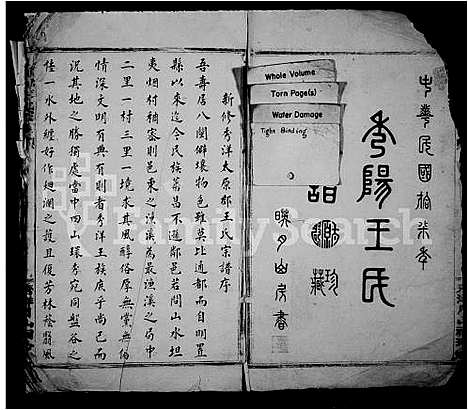 中華民國拾柒年
秀陽王氏
譜
珍藏
映月山房書
Whole Volume
Torn Page(s)
Water Damage
Tight Binding
FamilySearch
新修秀洋太原郡王氏宗譜序
吾壽居八閩僻壤物色雖莫比通都而自明置
縣以來迄今民族蕃昌不遜鄰邑若問山水坦
夷烟村稠密則邑東之漁溪為最漁溪之局中
二里一村三里一境求其風醇俗厚無黨無偏
情深文明有典有則者秀洋王族庶乎尚已而
況其地之勝獨處當中四山環秀宛同盤谷之
佳一水外繞好作廻瀾之護且復芳林蔭翳風